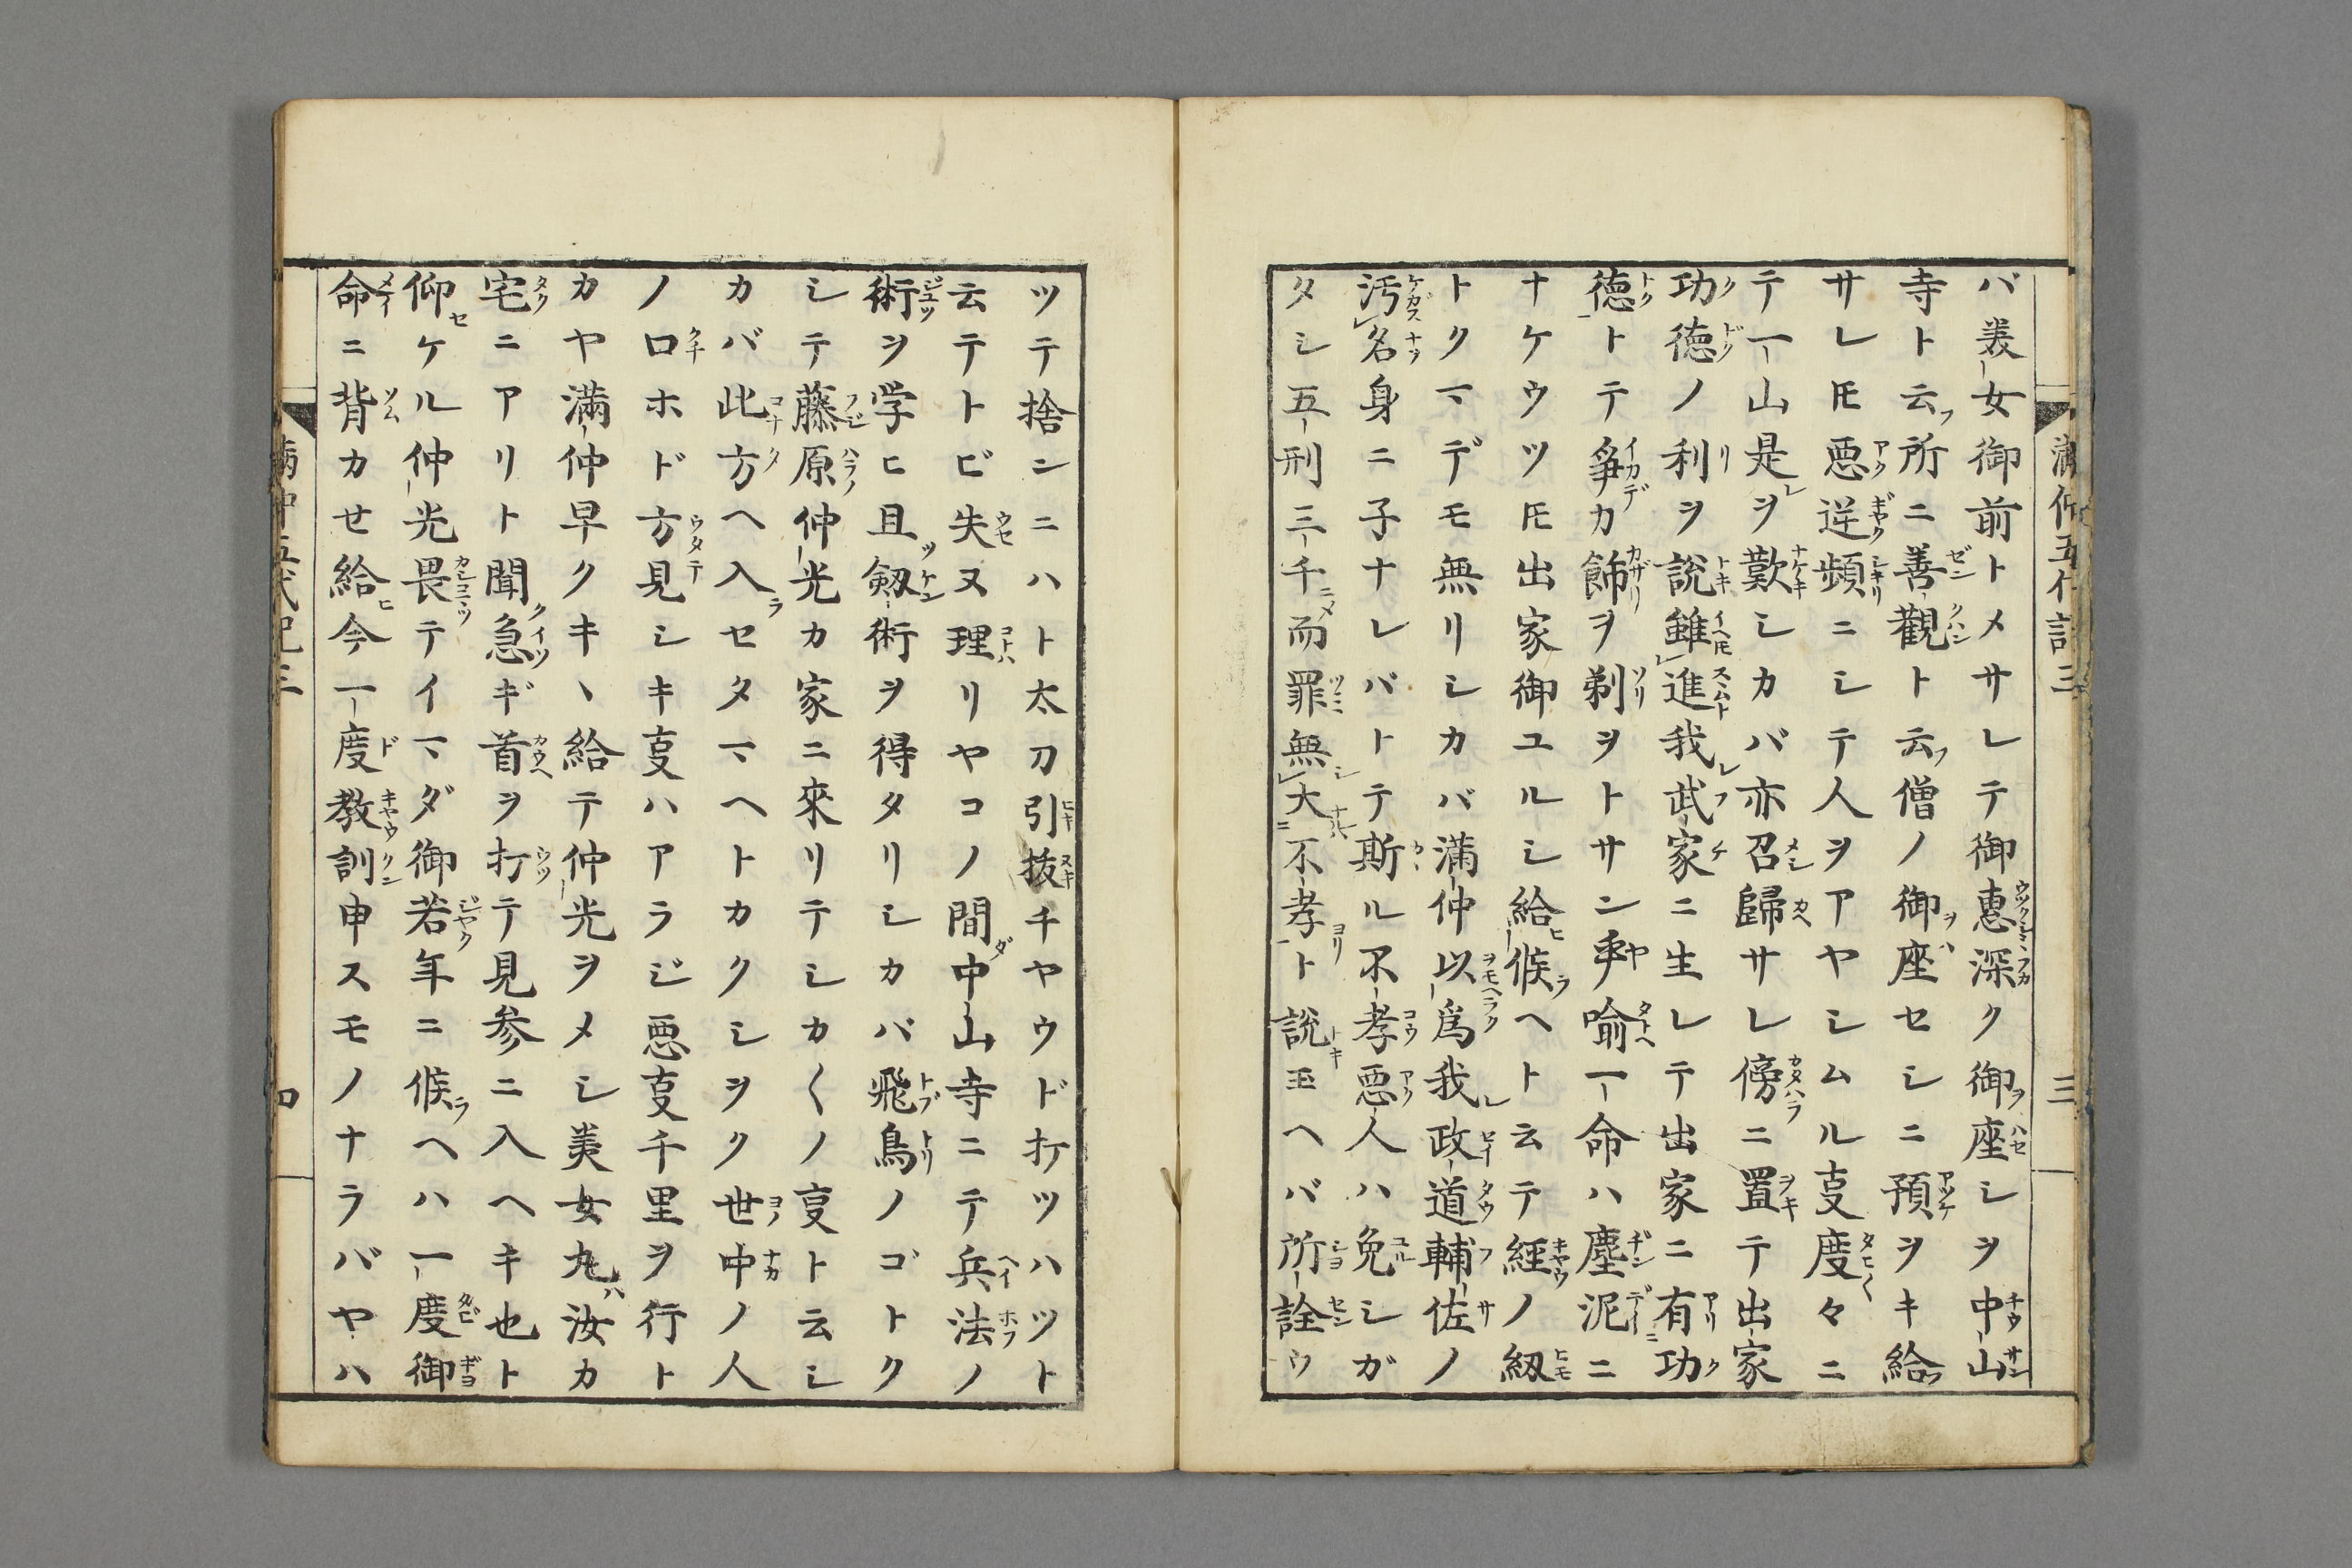 満仲五代記三 三
バ美女御前トメサレテ御恵深ク御座シヲ中山
寺ト云所ニ善觀ト云僧ノ御座セシニ預ヲキ給
サレ𪜈悪逆頻ニシテ人ヲアヤシムル叓度々ニ
テ一山是ヲ歎シカバ亦召歸サレ傍ニ置テ出家
功徳ノ利ヲ説雖進我武家ニ生レテ出家ニ有功
徳トテ爭カ飾ヲ剃ヲトサン事喻一命ハ塵泥ニ
ナケウツ𪜈出家御ユルシ給候ヘト云テ経ノ紐
トクマデモ無リシカバ満仲以爲我政道輔佐ノ
汚名身ニ子ナレバトテ斯ル不孝悪人ハ免シガ
タシ五刑三千而罪無大不孝ト説玉ヘバ所詮ウ
ツテ捨ンニハト太刀引抜チヤウド打ツハツト
云テトビ失ヌ理リヤコノ間中山寺ニテ兵法ノ
術ヲ学ヒ且剱術ヲ得タリシカバ飛鳥ノゴトク
シテ藤原仲光カ家ニ來リテシカ〱ノ叓ト云シ
カバ此方ヘ入セタマヘトカクシヲク世中ノ人
ノ口ホド方見シキ叓ハアラジ悪叓千里ヲ行ト
カヤ満仲早クキヽ給テ仲光ヲメシ美女丸汝カ
宅ニアリト聞急ギ首ヲ打テ見参ニ入ヘキ也ト
仰ケル仲光畏テイマダ御若年ニ候ヘハ一度御
命ニ背カせ給今一度教訓申スモノナラバヤハ
満仲五代記三 四